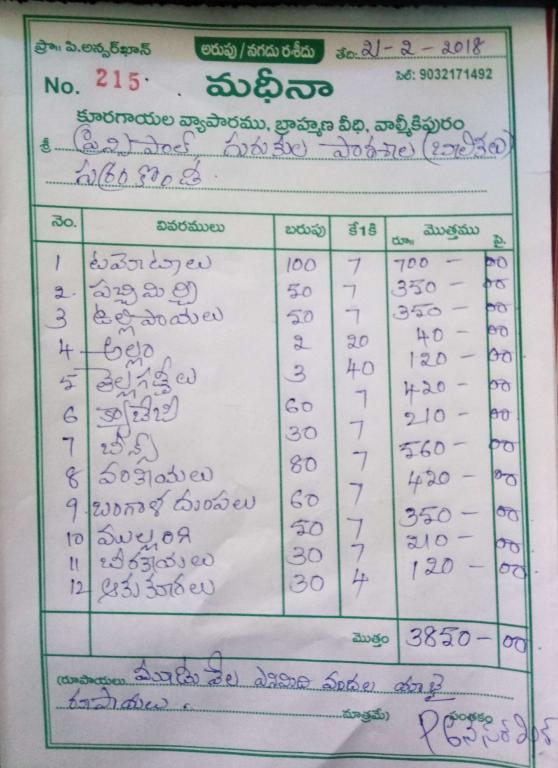 ప్రొ॥ పి.అన్వర్‌ఖాన్ అరువు / నగదు రశీదు తేది: 21-2-2018
No. 215 మధీనా సెల్: 9032171492
కూరగాయల వ్యాపారము, బ్రాహ్మణ వీధి, వాల్మీకిపురం
శ్రీ ప్రిన్సిపాల్, గురుకుల పాఠశాల (బాలికలు)
గుర్రంకొండ
నెం. వివరములు బరువు కే1కి మొత్తము రూ॥ పై.
1 టమోటాలు 100 7 700 - 00
2 పచ్చిమిర్చి 50 7 350 - 00
3 ఉల్లిపాయలు 50 7 350 - 00
4 అల్లం 2 20 40 - 00
5 తెల్లగడ్డలు 3 40 120 - 00
6 క్యాబేజి 60 7 420 - 00
7 బీన్స్ 30 7 210 - 00
8 వంకాయలు 80 7 560 - 00
9 బంగాళ దుంపలు 60 7 420 - 00
10 ముల్లంగి 50 7 350 - 00
11 బీరకాయలు 30 7 210 - 00
12 ఆకుకూరలు 30 4 120 - 00
మొత్తం 3850 - 00
(రూపాయలు మూడు వేల ఎనిమిది వందల యాభై
రూపాయలు. మాత్రమే) సంతకం